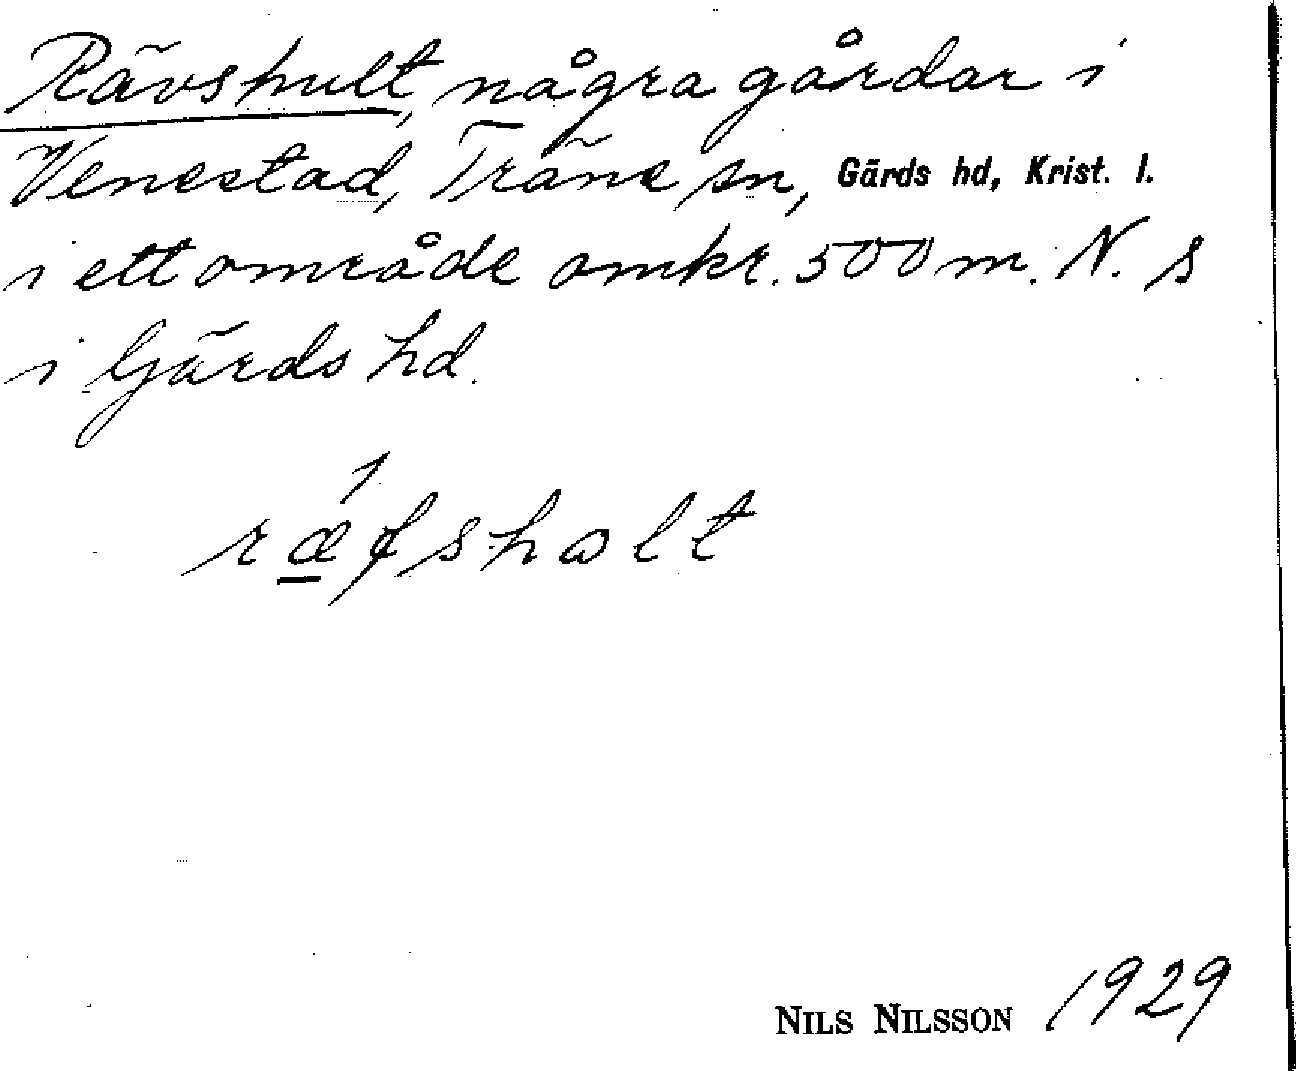 Rävshult, några gårdar i
Venestad, Träne sn, Gärds hd, Krist. l.
i ett område omkr. 500 m. N. s
i Gärds hd.
ræfshalt
NILS NILSSON 1929